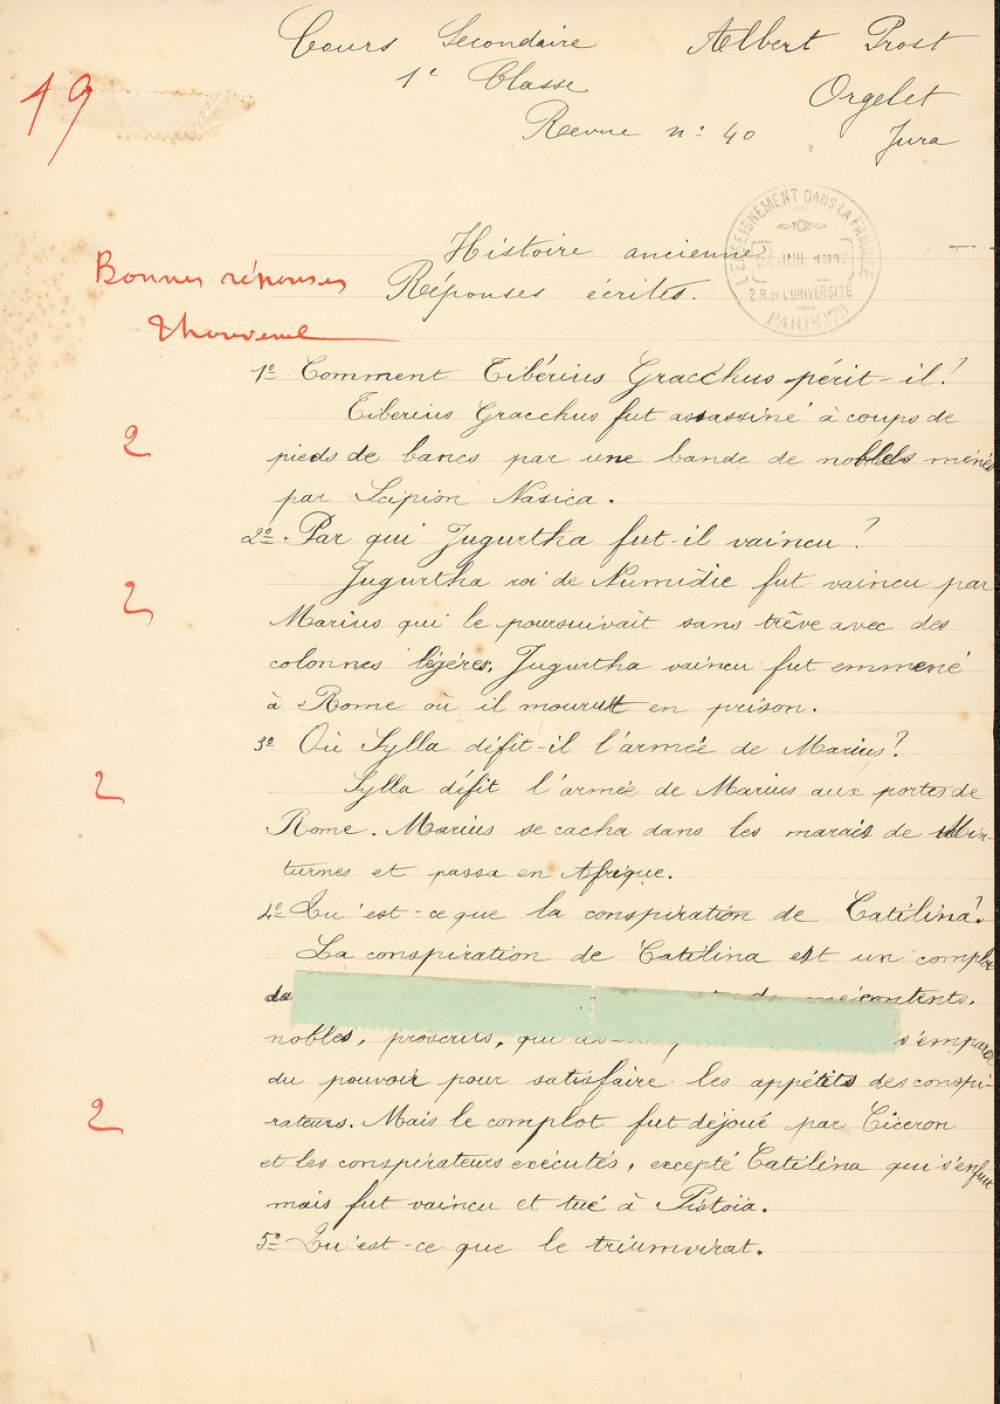 Cours Secondaire Albert Prost
1e Classe Orgelet
19
Revue n: 40 Jura
L'ENSEIGNEMENT DANS LA FAMILLE
JUIL
2.R. de L'UNIVERSITÉ
PARIS (7e)
Histoire ancienne
Bonnes réponses
Réponses écrites.
1º Comment Tibérius Gracchus périt-il?
Tiberius Gracchus fut assassiné à coups de
2
pieds de bancs par une bande de nobles menés
par Scipion Nasica.
2º. Par qui Jugurtha fut-il vaincu?
Jugurtha roi de Numidie fut vaincu par
2
Marius qui le poursuivait sans trêve avec des
colonnes légéres, Jugurtha vaincu fut emmené
à Rome où il mourut en prison.
3º Où Sylla défit-il l'armée de Marius?
2
Sylla défit l'armée de Marius aux portes de
Rome. Marius se cacha dans les marais de Min-
turnes et passa en Afrique.
4º Qu'est-ce que la conspiration de Catilina?
La conspiration de Catilina est un complot
de mécontents,
nobles, proscrits, qui s'emparer
du pouvoir pour satisfaire les appétits des conspi-
2
rateurs. Mais le complot fut déjoué par Ciceron
et les conspirateurs exécutés, excepté Catilina qui s'enfuit
mais fut vaincu et tué à Pistoïa.
5º Qu'est-ce que le triumvirat.